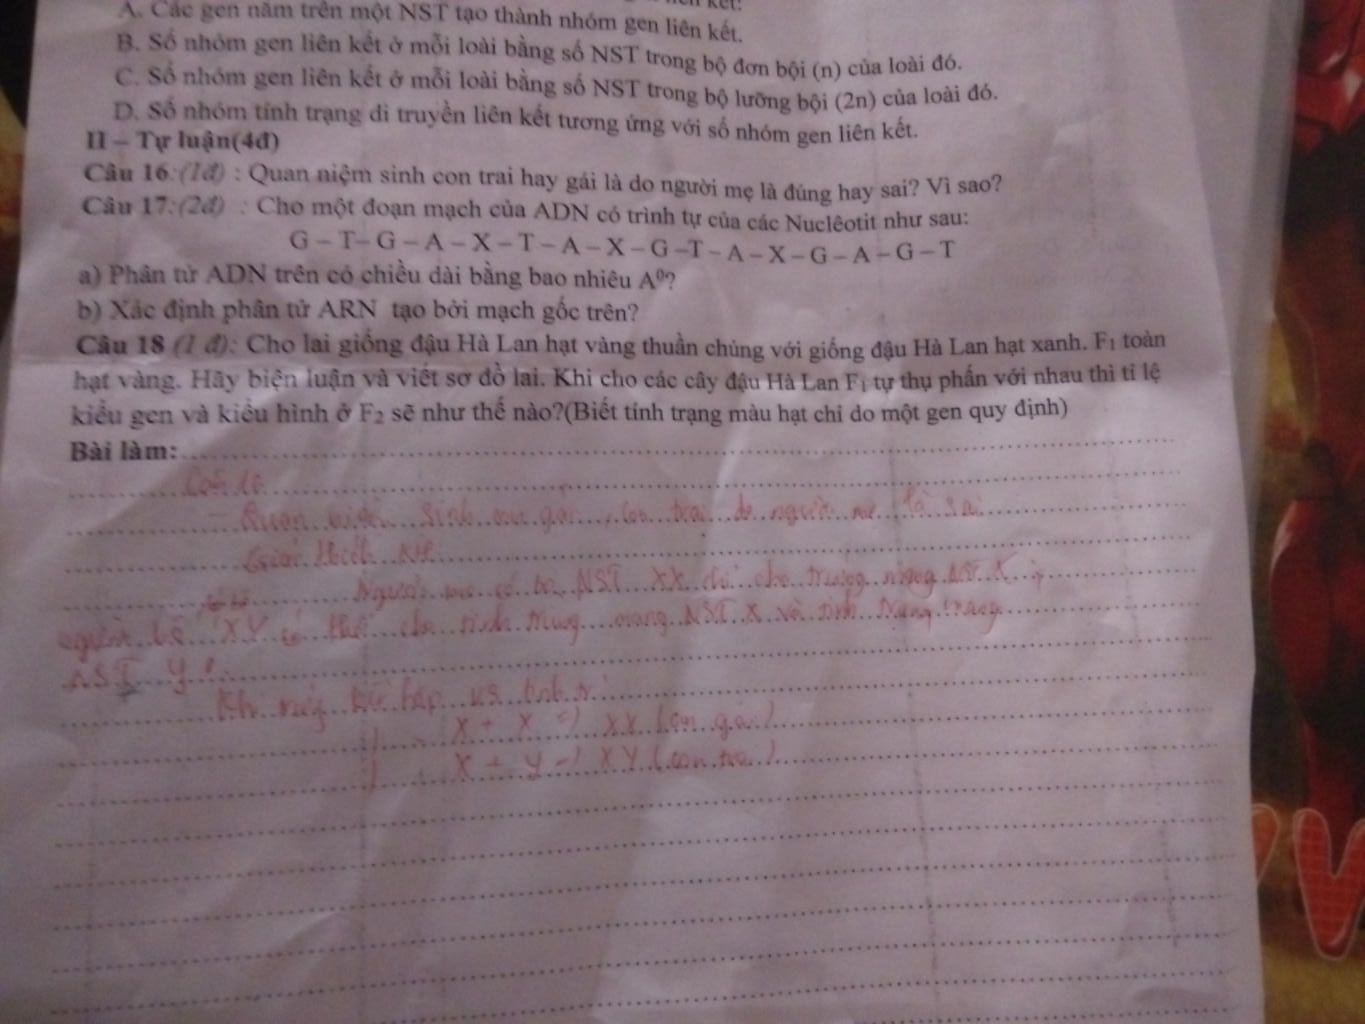 kết:
A. Các gen nằm trên một NST tạo thành nhóm gen liên kết.
B. Số nhóm gen liên kết ở mỗi loài bằng số NST trong bộ đơn bội (n) của loài đó.
C. Số nhóm gen liên kết ở mỗi loài bằng số NST trong bộ lưỡng bội (2n) của loài đó.
D. Số nhóm tính trạng di truyền liên kết tương ứng với số nhóm gen liên kết.
II – Tự luận(4đ)
Câu 16:(1đ) : Quan niệm sinh con trai hay gái là do người mẹ là đúng hay sai? Vì sao?
Câu 17:(2đ) : Cho một đoạn mạch của ADN có trình tự của các Nuclêotit như sau:
G – T– G – A – X – T – A – X – G –T – A – X – G – A – G – T
a) Phân tử ADN trên có chiều dài bằng bao nhiêu A⁰?
b) Xác định phân tử ARN tạo bởi mạch gốc trên?
Câu 18 (1 đ): Cho lai giống đậu Hà Lan hạt vàng thuần chủng với giống đậu Hà Lan hạt xanh. F₁ toàn
hạt vàng. Hãy biện luận và viết sơ đồ lai. Khi cho các cây đậu Hà Lan F₁ tự thụ phấn với nhau thì tỉ lệ
kiểu gen và kiểu hình ở F₂ sẽ như thế nào?(Biết tính trạng màu hạt chỉ do một gen quy định)
Bài làm:
- Quan niệm sinh con gái, con trai do người mẹ là sai
Giải thích
Người mẹ có NST XX chỉ cho trứng mang NST X
người bố XY có thể cho tinh trùng mang NST X và tinh trùng mang
NST Y
X + X => XX (con gái)
X + Y => XY (con trai)